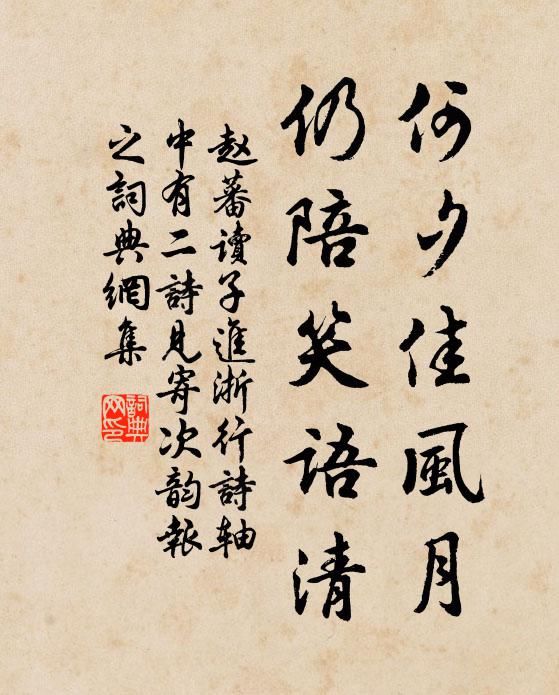 何夕佳風月
仍陪笑語清
赵蕃讀子進浙行詩轴
中有二詩見寄次韵報
之詞典網集
詞典
网印